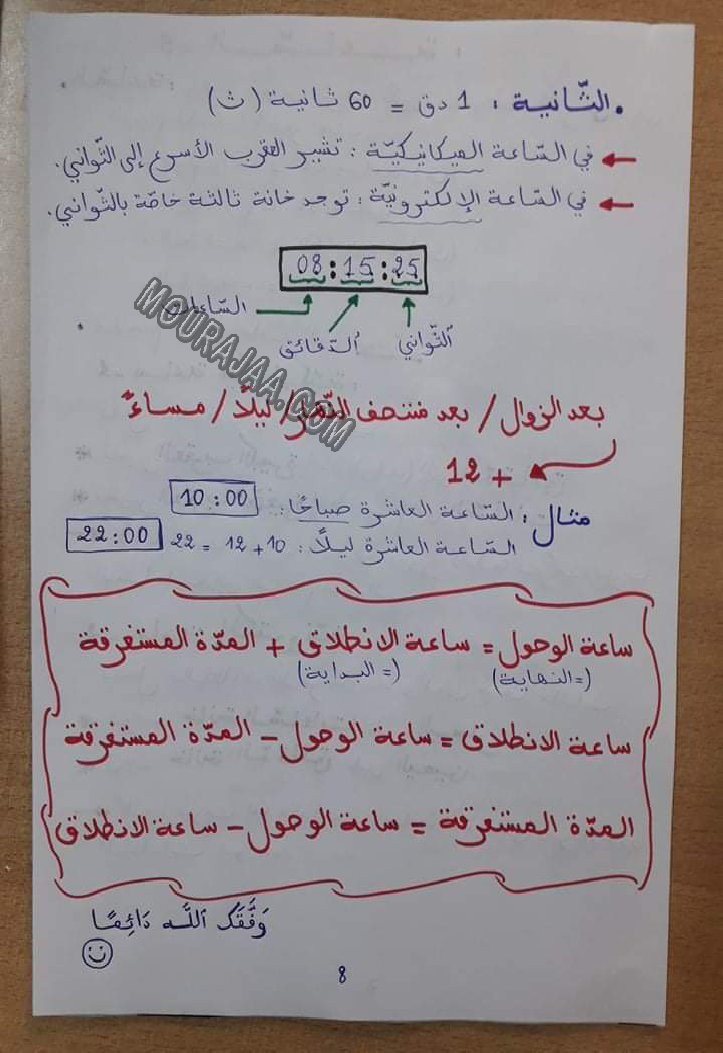 . الثّانية : 1 دق = 60 ثانية (ث)
← في السّاعة الميكانيكيّة : تشير العقرب الأسرع إلى الثّواني.
← في السّاعة الإلكترونيّة : توجد خانة ثالثة خاصّة بالثّواني.
08:15:25
السّاعات
الدّقائق
الثّواني
MOURAJAA.COM
بعد الزوال / بعد منتصف النّهار / ليلًا / مساءً
+ 12
مثال : السّاعة العاشرة صباحًا : 10:00
السّاعة العاشرة ليلًا : 10+12 = 22 22:00
ساعة الوصول = ساعة الانطلاق + المدّة المستغرقة
(= النهاية) (= البداية)
ساعة الانطلاق = ساعة الوصول - المدّة المستغرقة
المدّة المستغرقة = ساعة الوصول - ساعة الانطلاق
وَفَّقَكَ اللَّه دَائِمًا
8